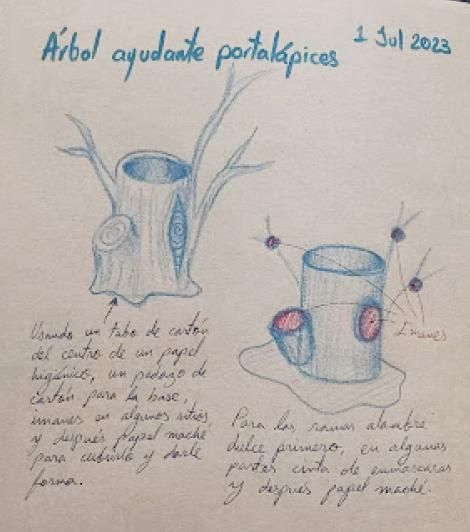 Árbol ayudante portalápices
1 Jul 2023
Usando un tubo de cartón
del centro de un papel
higiénico, un pedazo de
cartón para la base,
imanes en algunos sitios,
y después papel maché
para cubrirlo y darle
forma.
Imanes
Para las ramas alambre
dulce primero, en algunas
partes cinta de enmascarar
y después papel maché.